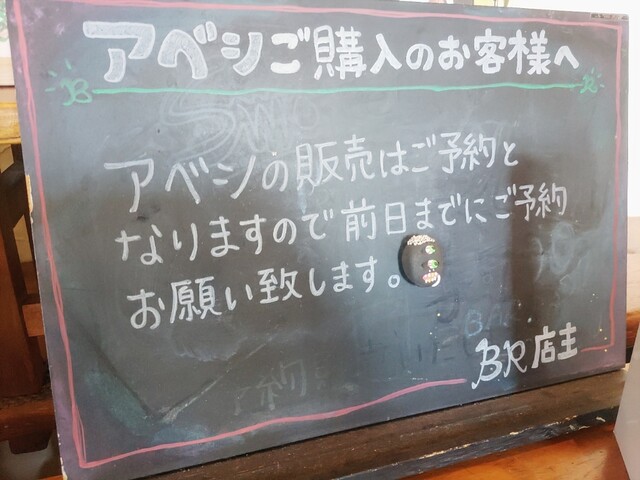 アベシご購入のお客様へ
B R
アベシの販売はご予約と
なりますので前日までにご予約
お願い致します。
BR店主